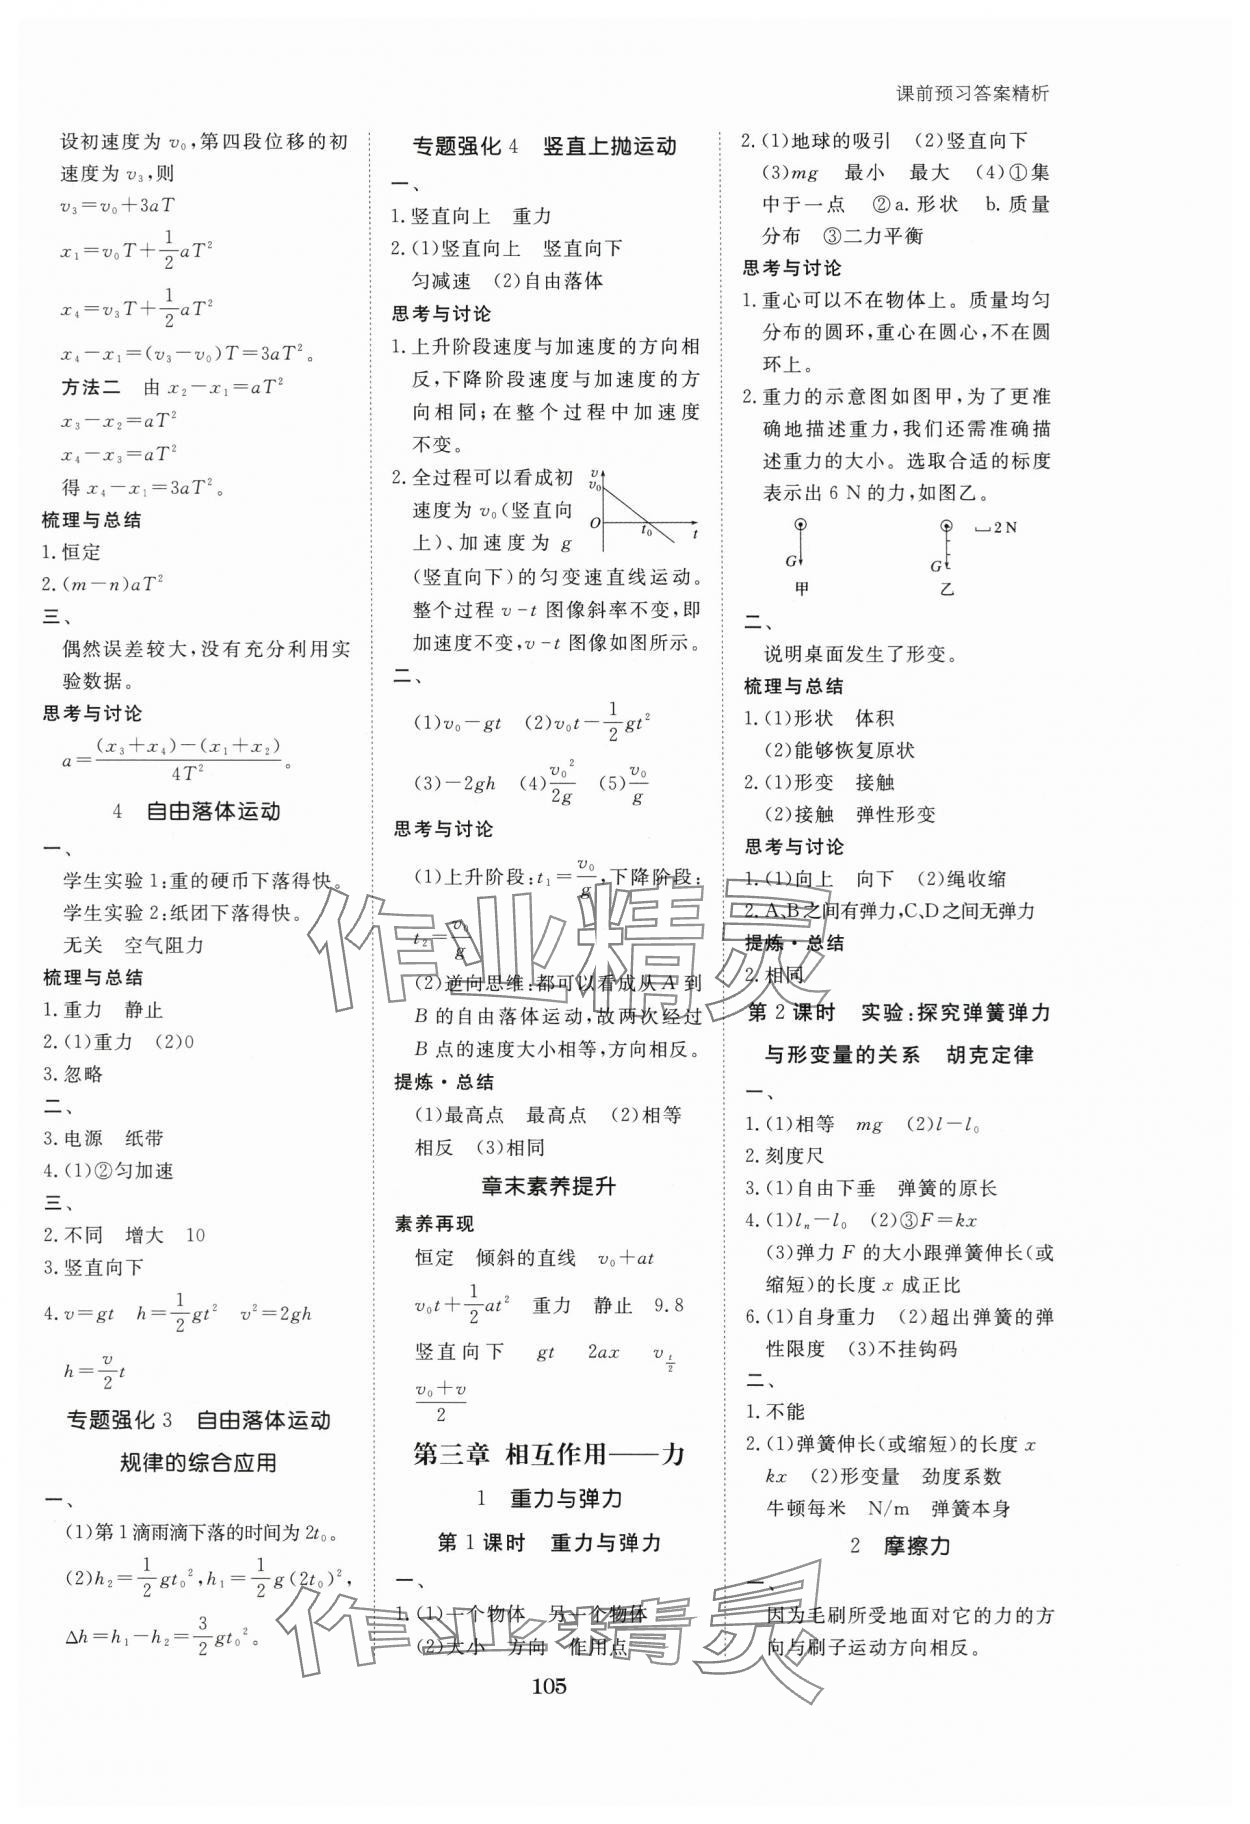 课前预习答案精析
设初速度为 v₀,第四段位移的初
速度为 v₃,则
v₃=v₀+3aT
x₁=v₀T+1/2aT²
x₄=v₃T+1/2aT²
x₄-x₁=(v₃-v₀)T=3aT²。
方法二 由 x₂-x₁=aT²
x₃-x₂=aT²
x₄-x₃=aT²
得 x₄-x₁=3aT²。
梳理与总结
1.恒定
2.(m-n)aT²
三、
偶然误差较大,没有充分利用实
验数据。
思考与讨论
a=(x₃+x₄)-(x₁+x₂)/4T²。
4 自由落体运动
一、
学生实验 1:重的硬币下落得快。
学生实验 2:纸团下落得快。
无关 空气阻力
梳理与总结
1.重力 静止
2.(1)重力 (2)0
3.忽略
二、
3.电源 纸带
4.(1)②匀加速
三、
2.不同 增大 10
3.竖直向下
4.v=gt h=1/2gt² v²=2gh
h=v/2t
专题强化 3 自由落体运动
规律的综合应用
一、
(1)第 1 滴雨滴下落的时间为 2t₀。
(2)h₂=1/2gt₀²,h₁=1/2g(2t₀)²,
Δh=h₁-h₂=3/2gt₀²。
专题强化 4 竖直上抛运动
一、
1.竖直向上 重力
2.(1)竖直向上 竖直向下
匀减速 (2)自由落体
思考与讨论
1.上升阶段速度与加速度的方向相
反,下降阶段速度与加速度的方
向相同;在整个过程中加速度
不变。
2.全过程可以看成初
速度为 v₀(竖直向
上)、加速度为 g
v
v₀
O
t₀
t
(竖直向下)的匀变速直线运动。
整个过程 v-t 图像斜率不变,即
加速度不变,v-t 图像如图所示。
二、
(1)v₀-gt (2)v₀t-1/2gt²
(3)-2gh (4)v₀²/2g (5)v₀/g
思考与讨论
(1)上升阶段:t₁=v₀/g,下降阶段:
t₂=v₀/g
(2)逆向思维:都可以看成从 A 到
B 的自由落体运动,故两次经过
B 点的速度大小相等,方向相反。
提炼·总结
(1)最高点 最高点 (2)相等
相反 (3)相同
章末素养提升
素养再现
恒定 倾斜的直线 v₀+at
v₀t+1/2at² 重力 静止 9.8
竖直向下 gt 2ax v_{t/2}
v₀+v/2
第三章 相互作用——力
1 重力与弹力
第 1 课时 重力与弹力
一、
1.(1)一个物体 另一个物体
(2)大小 方向 作用点
2.(1)地球的吸引 (2)竖直向下
(3)mg 最小 最大 (4)①集
中于一点 ②a.形状 b.质量
分布 ③二力平衡
思考与讨论
1.重心可以不在物体上。质量均匀
分布的圆环,重心在圆心,不在圆
环上。
2.重力的示意图如图甲,为了更准
确地描述重力,我们还需准确描
述重力的大小。选取合适的标度
表示出 6 N 的力,如图乙。
2 N
G G
甲 乙
二、
说明桌面发生了形变。
梳理与总结
1.(1)形状 体积
(2)能够恢复原状
2.(1)形变 接触
(2)接触 弹性形变
思考与讨论
1.(1)向上 向下 (2)绳收缩
2.A、B之间有弹力,C、D之间无弹力
提炼·总结
2.相同
第 2 课时 实验:探究弹簧弹力
与形变量的关系 胡克定律
一、
1.(1)相等 mg (2)l-l₀
2.刻度尺
3.(1)自由下垂 弹簧的原长
4.(1)lₙ-l₀ (2)③F=kx
(3)弹力 F 的大小跟弹簧伸长(或
缩短)的长度 x 成正比
6.(1)自身重力 (2)超出弹簧的弹
性限度 (3)不挂钩码
二、
1.不能
2.(1)弹簧伸长(或缩短)的长度 x
kx (2)形变量 劲度系数
牛顿每米 N/m 弹簧本身
2 摩擦力
一、
因为毛刷所受地面对它的力的方
向与刷子运动方向相反。
作业精灵
作业精灵
105